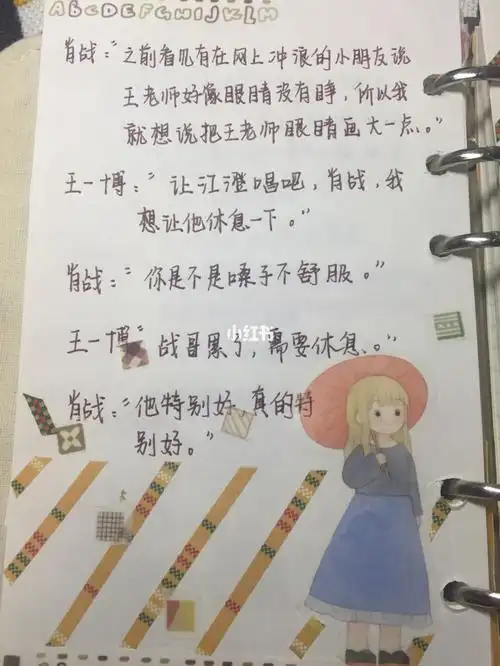 ABCDEFGHIJKLM
肖战："之前看见有在网上冲浪的小朋友说
王老师好像眼睛没有睁，所以我
就想说把王老师眼睛画大一点、。"
王一博："让江澄唱吧，肖战，我
想让他休息一下。"
肖战："你是不是嗓子不舒服。"
小红书
王一博"战哥累了，需要休息、。"
肖战："他特别好、真的特
别好。"